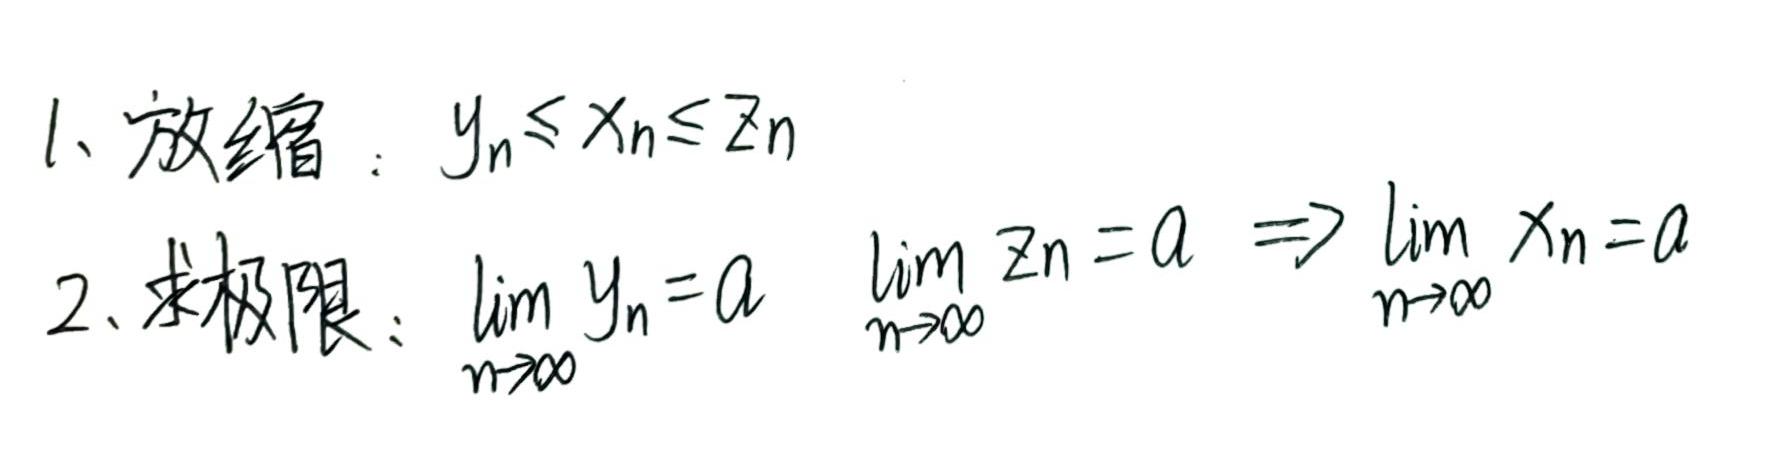 1、放缩：yₙ ≤ xₙ ≤ zₙ
2、求极限：lim_{n→∞} yₙ = a  lim_{n→∞} zₙ = a ⇒ lim_{n→∞} xₙ = a